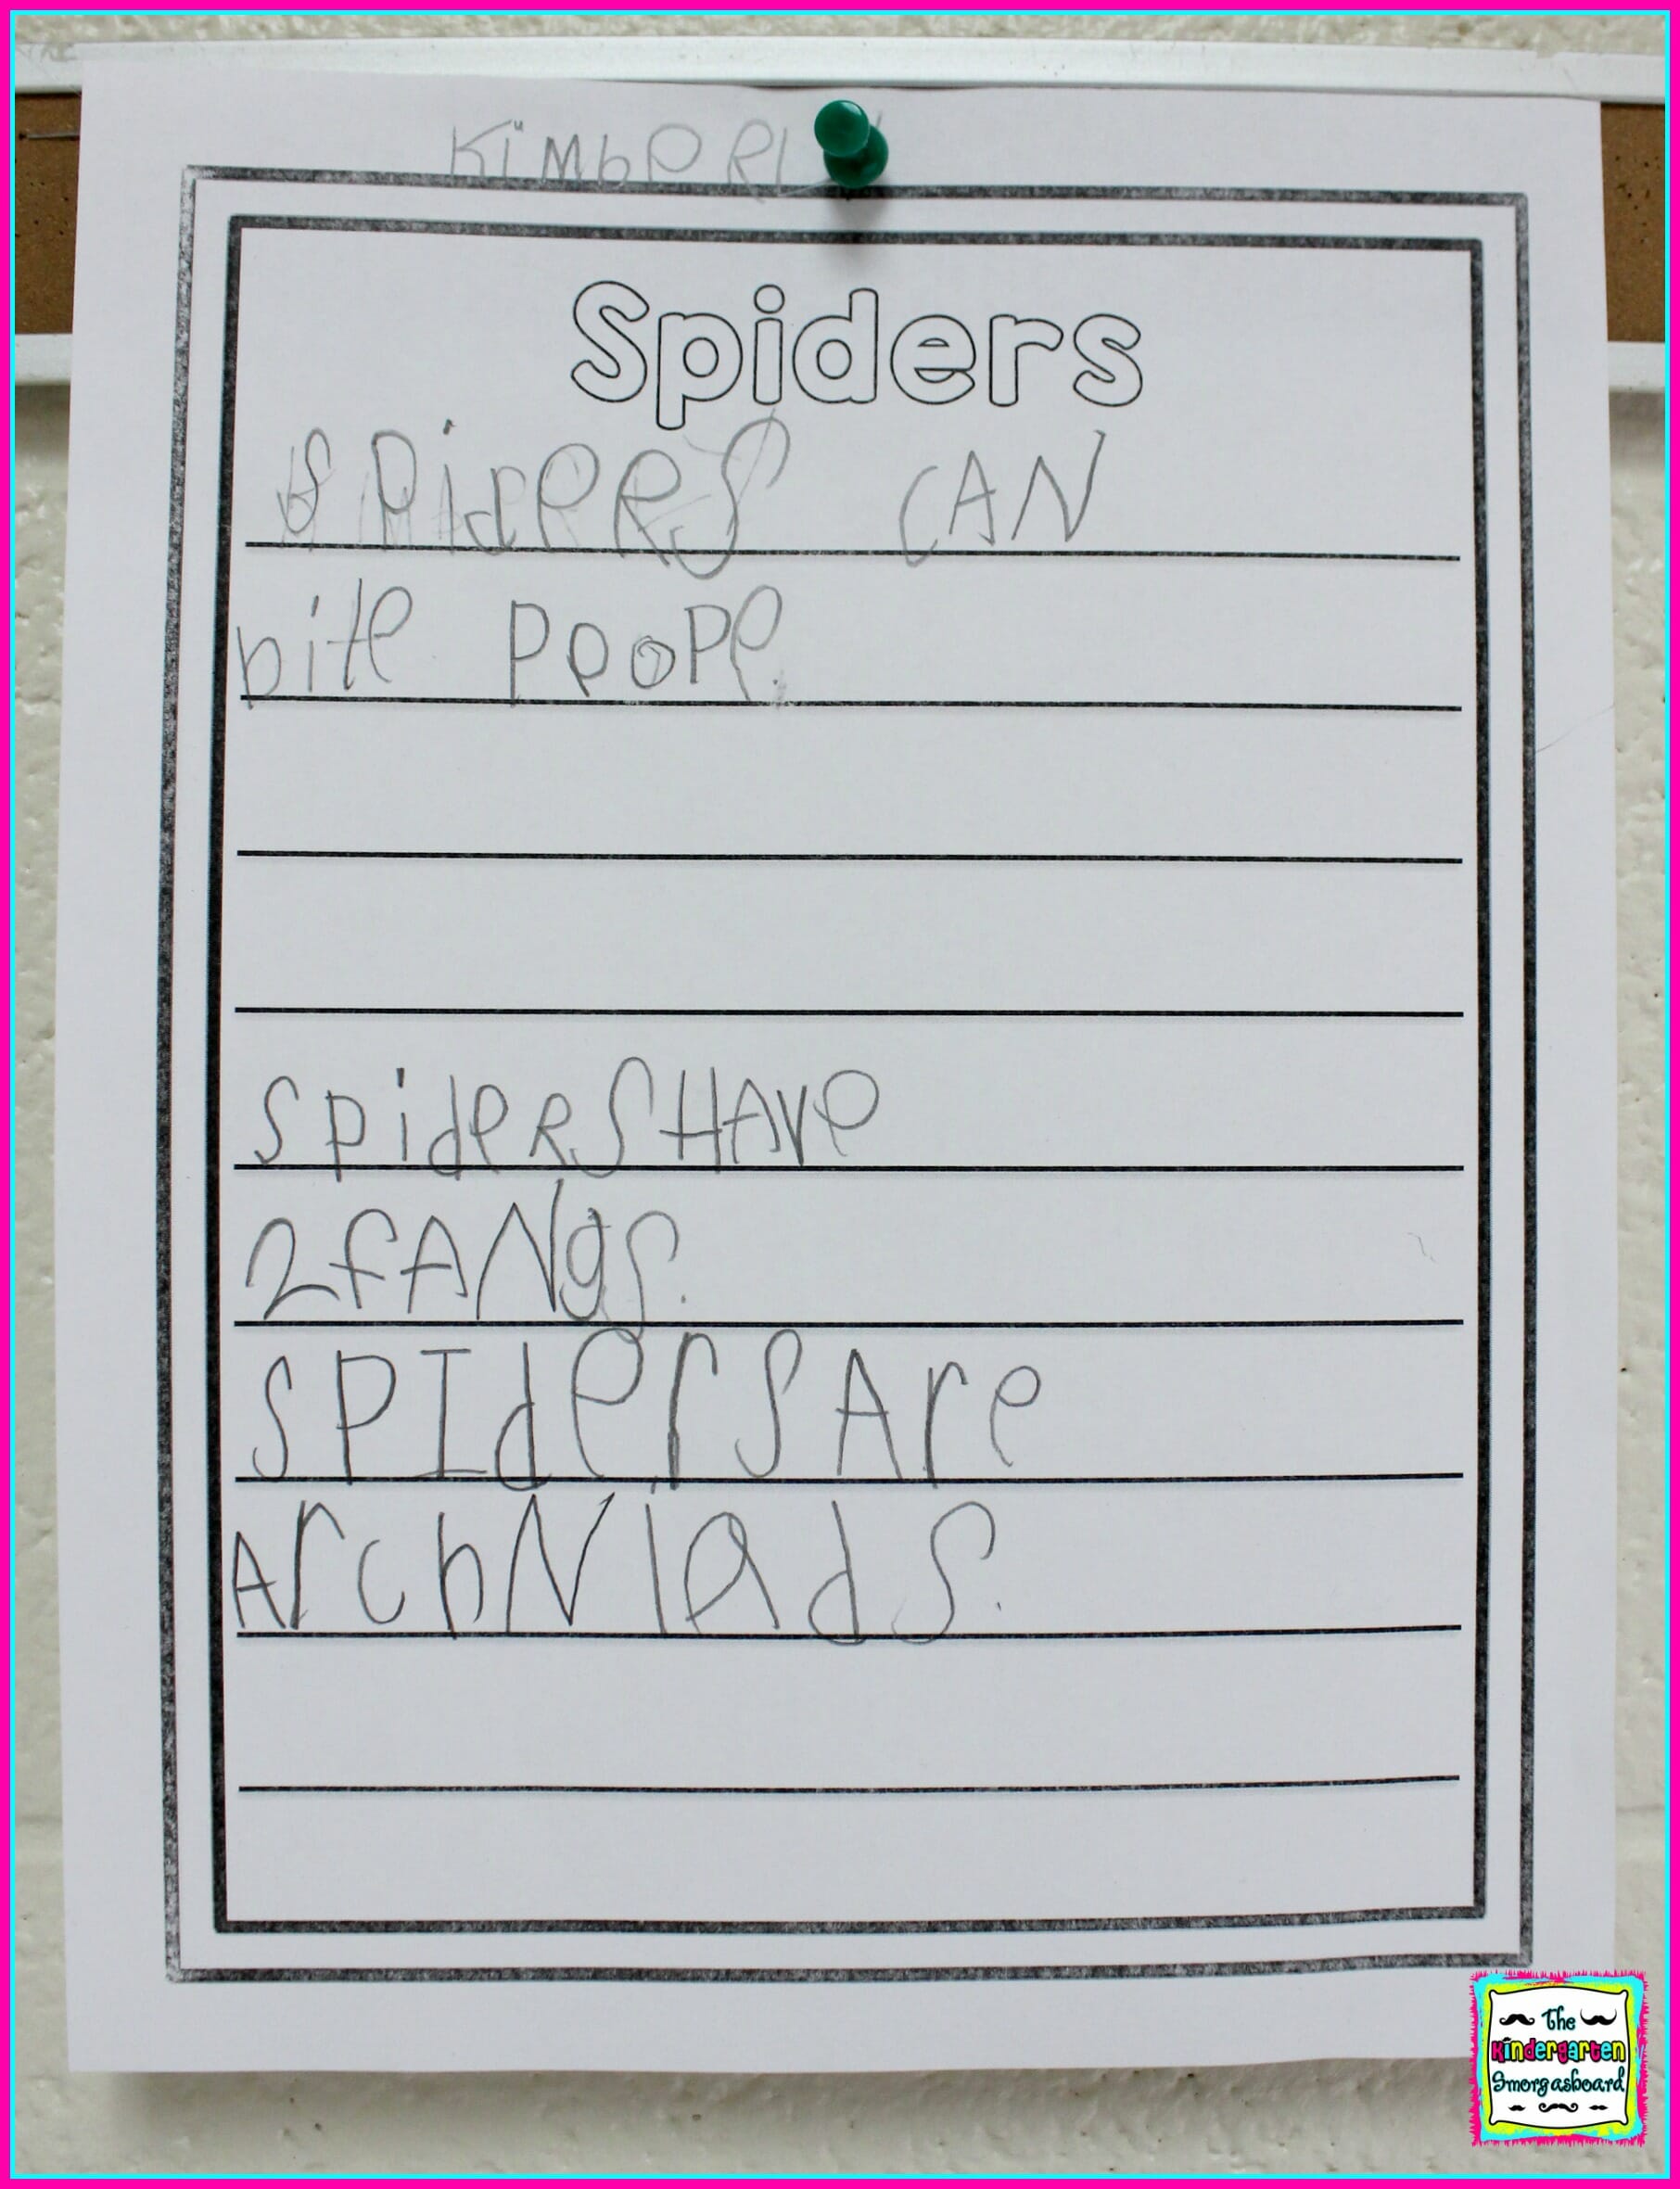 KimbeRL
Spiders
SPideRS CAN
bite PeoPe.
SpideRS HAve
2 fANgs.
SPIders Are
ArchNiads.
The
Kindergarten
Smorgasboard